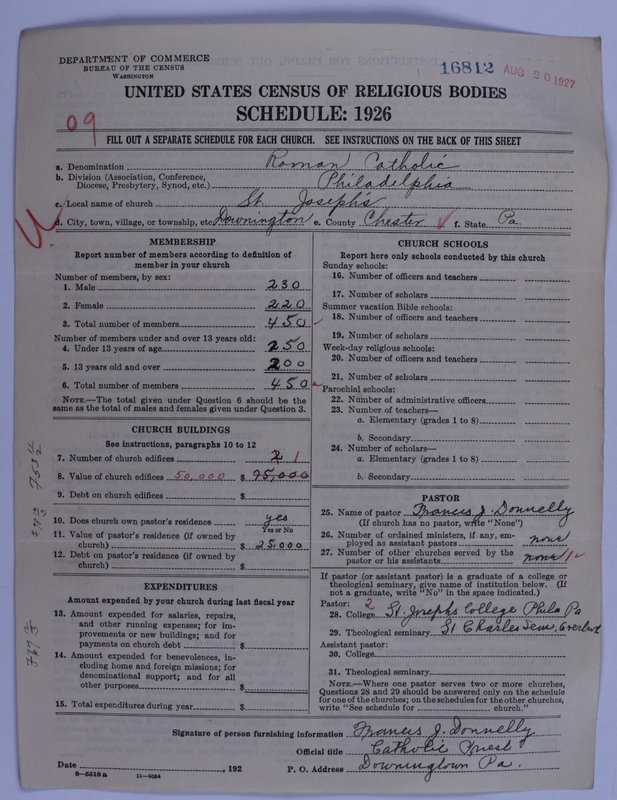 DEPARTMENT OF COMMERCE
BUREAU OF THE CENSUS
WASHINGTON
16812 AUG 20 1927
UNITED STATES CENSUS OF RELIGIOUS BODIES
SCHEDULE: 1926
09
FILL OUT A SEPARATE SCHEDULE FOR EACH CHURCH. SEE INSTRUCTIONS ON THE BACK OF THIS SHEET
a. Denomination Roman Catholic
b. Division (Association, Conference, Diocese, Presbytery, Synod, etc.) Philadelphia
c. Local name of church St. Joseph's
d. City, town, village, or township, etc. Downington e. County Chester f. State Pa
MEMBERSHIP
Report number of members according to definition of
member in your church
Number of members, by sex:
1. Male 230
2. Female 220
3. Total number of members 450
Number of members under and over 13 years old:
4. Under 13 years of age 250
5. 13 years old and over 200
6. Total number of members 450
NOTE.—The total given under Question 6 should be
same as the total of males and females given under Question 3.
CHURCH BUILDINGS
See instructions, paragraphs 10 to 12
7. Number of church edifices 2 1
8. Value of church edifices 50,000 $ 75,000
9. Debt on church edifices $
10. Does church own pastor's residence yes
Yes or No
11. Value of pastor's residence (if owned by
church) $ 25.000
12. Debt on pastor's residence (if owned by
church) $
EXPENDITURES
Amount expended by your church during last fiscal year
13. Amount expended for salaries, repairs,
and other running expenses; for im-
provements or new buildings; and for
payments on church debt $
14. Amount expended for benevolences, in-
cluding home and foreign missions; for
denominational support; and for all
other purposes $
15. Total expenditures during year $
CHURCH SCHOOLS
Report here only schools conducted by this church
Sunday schools:
16. Number of officers and teachers
17. Number of scholars
Summer vacation Bible schools:
18. Number of officers and teachers
19. Number of scholars
Week-day religious schools:
20. Number of officers and teachers
21. Number of scholars
Parochial schools:
22. Number of administrative officers
23. Number of teachers—
a. Elementary (grades 1 to 8)
b. Secondary
24. Number of scholars—
a. Elementary (grades 1 to 8)
b. Secondary
PASTOR
25. Name of pastor Francis J. Donnelly
(If church has no pastor, write "None")
26. Number of ordained ministers, if any, em-
ployed as assistant pastors none
27. Number of other churches served by the
pastor or his assistants none 1
If pastor (or assistant pastor) is a graduate of a college or
theological seminary, give name of institution below. (If
not a graduate, write "No" in the space indicated.)
Pastor: 2
28. College St. Josephs College Phila Pa
29. Theological seminary St Charles Sem. Overbrook
Assistant pastor:
30. College
31. Theological seminary
NOTE.—Where one pastor serves two or more churches,
Questions 28 and 29 should be answered only on the schedule
for one of the churches; on the schedules for the other churches,
write "See schedule for church."
Signature of person furnishing information Francis J. Donnelly
Official title Catholic Priest
Date , 192 P. O. Address Downingtown Pa.
8—5518a 11—9054